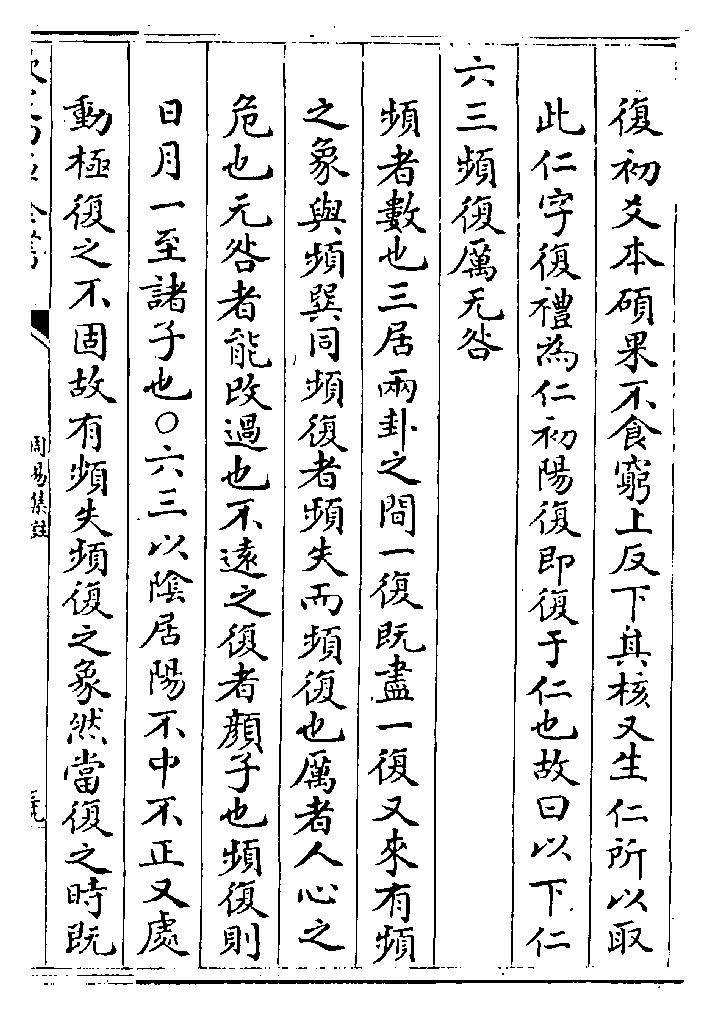 復初爻本碩果不食窮上反下其核又生仁所以取
此仁字復禮為仁初陽復即復于仁也故曰以下仁
六三頻復厲无咎
頻者數也三居兩卦之間一復既盡一復又來有頻
之象與頻巽同頻復者頻失而頻復也厲者人心之
危也无咎者能改過也不遠之復者顏子也頻復則
日月一至諸子也○六三以陰居陽不中不正又處
動極復之不固故有頻失頻復之象然當復之時既
周易集註